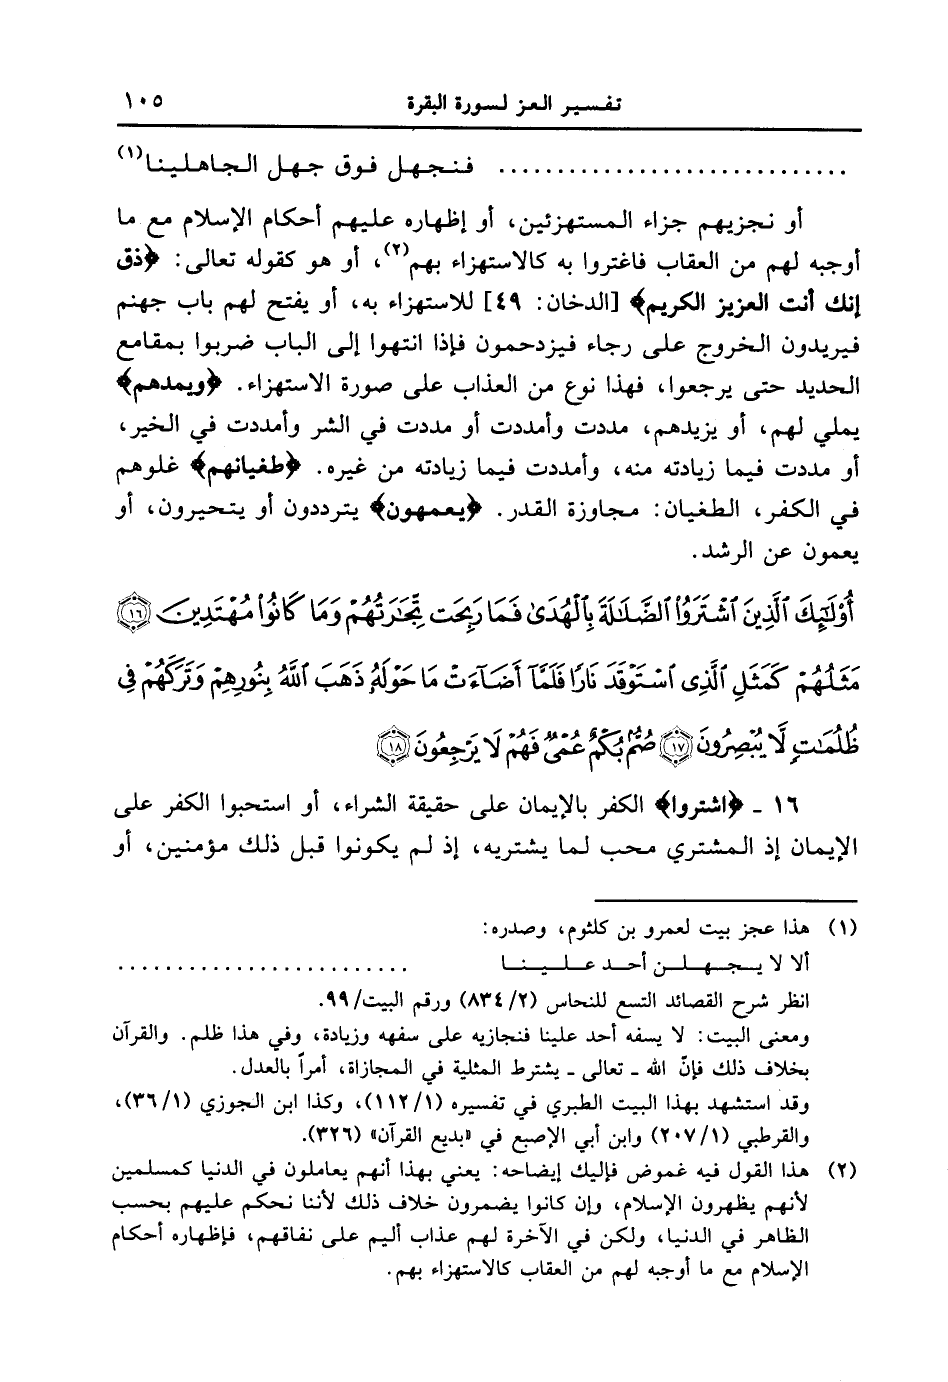 تفسير العز لسورة البقرة ١٠٥
.............................. فنجهل فوق جهل الجاهلينا(١)
أو نجزيهم جزاء المستهزئين، أو إظهاره عليهم أحكام الإسلام مع ما
أوجبه لهم من العقاب فاغتروا به كالاستهزاء بهم(٢)، أو هو كقوله تعالى: ﴿ذق
إنك أنت العزيز الكريم﴾ [الدخان: ٤٩] للاستهزاء به، أو يفتح لهم باب جهنم
فيريدون الخروج على رجاء فيزدحمون فإذا انتهوا إلى الباب ضربوا بمقامع
الحديد حتى يرجعوا، فهذا نوع من العذاب على صورة الاستهزاء. ﴿ويمدهم﴾
يملي لهم، أو يزيدهم، مددت وأمددت أو مددت في الشر وأمددت في الخير،
أو مددت فيما زيادته منه، وأمددت فيما زيادته من غيره. ﴿طغيانهم﴾ غلوهم
في الكفر، الطغيان: مجاوزة القدر. ﴿يعمهون﴾ يترددون أو يتحيرون، أو
يعمون عن الرشد.
أُوْلَٰٓئِكَ ٱلَّذِينَ ٱشْتَرَوُا۟ ٱلضَّلَٰلَةَ بِٱلْهُدَىٰ فَمَا رَبِحَت تِّجَٰرَتُهُمْ وَمَا كَانُوا۟ مُهْتَدِينَ ١٦
مَثَلُهُمْ كَمَثَلِ ٱلَّذِى ٱسْتَوْقَدَ نَارًا فَلَمَّآ أَضَآءَتْ مَا حَوْلَهُۥ ذَهَبَ ٱللَّهُ بِنُورِهِمْ وَتَرَكَهُمْ فِى
ظُلُمَٰتٍ لَّا يُبْصِرُونَ ١٧ صُمٌّۢ بُكْمٌ عُمْىٌ فَهُمْ لَا يَرْجِعُونَ ١٨
١٦ ـ ﴿اشتروا﴾ الكفر بالإيمان على حقيقة الشراء، أو استحبوا الكفر على
الإيمان إذ المشتري محب لما يشتريه، إذ لم يكونوا قبل ذلك مؤمنين، أو
(١) هذا عجز بيت لعمرو بن كلثوم، وصدره:
ألا لا يـجـهـلـن أحـد عـلـيـنـا .........................
انظر شرح القصائد التسع للنحاس (٢/ ٨٣٤) ورقم البيت/ ٩٩.
ومعنى البيت: لا يسفه أحد علينا فنجازيه على سفهه وزيادة، وفي هذا ظلم. والقرآن
بخلاف ذلك فإنّ الله ـ تعالى ـ يشترط المثلية في المجازاة، أمراً بالعدل.
وقد استشهد بهذا البيت الطبري في تفسيره (١/ ١١٢)، وكذا ابن الجوزي (١/ ٣٦)،
والقرطبي (١/ ٢٠٧) وابن أبي الإصبع في «بديع القرآن» (٣٢٦).
(٢) هذا القول فيه غموض فإليك إيضاحه: يعني بهذا أنهم يعاملون في الدنيا كمسلمين
لأنهم يظهرون الإسلام، وإن كانوا يضمرون خلاف ذلك لأننا نحكم عليهم بحسب
الظاهر في الدنيا، ولكن في الآخرة لهم عذاب أليم على نفاقهم، فإظهاره أحكام
الإسلام مع ما أوجبه لهم من العقاب كالاستهزاء بهم.